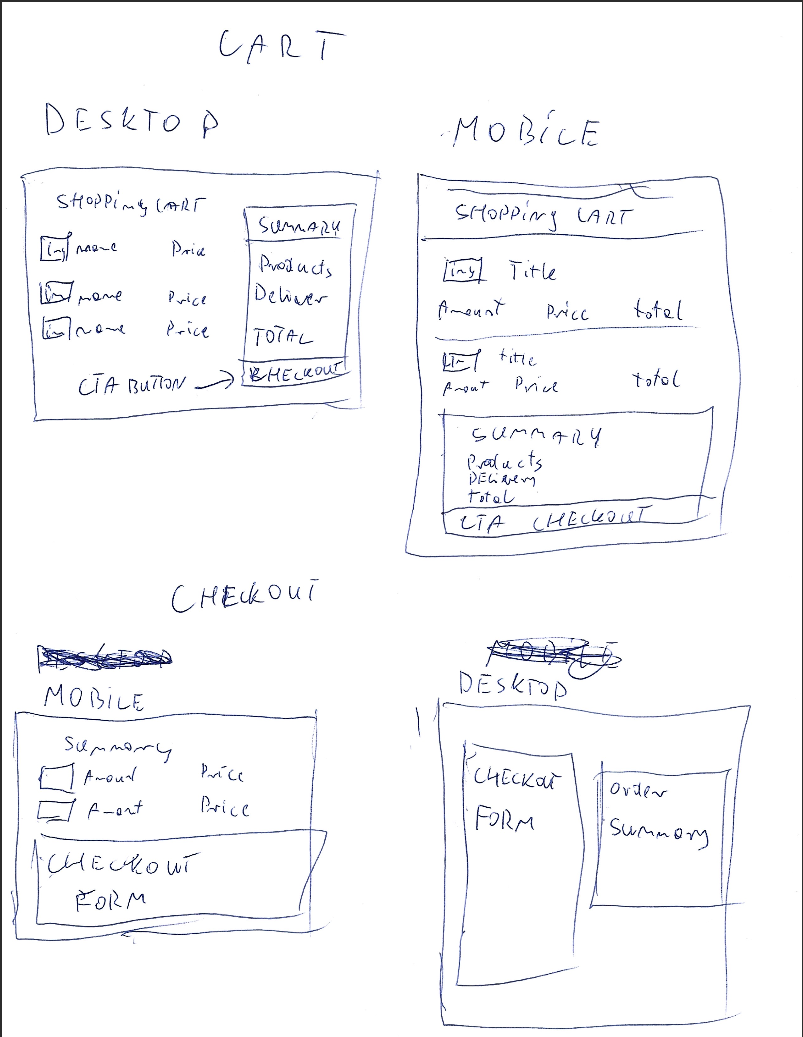 CART
DESKTOP
SHOPPING CART
img name Price
img name Price
img name Price
SUMMARY
Products
Deliver
TOTAL
CHECKOUT
CTA BUTTON
MOBILE
SHOPPING CART
img Title
Amount Price total
title
Amout Price total
SUMMARY
Products
DELivery
total
CTA CHECKOUT
CHECKOUT
MOBILE
Summary
Amount Price
Amont Price
CHECKOUT
FORM
DESKTOP
CHECKOUT
FORM
Order
Summary